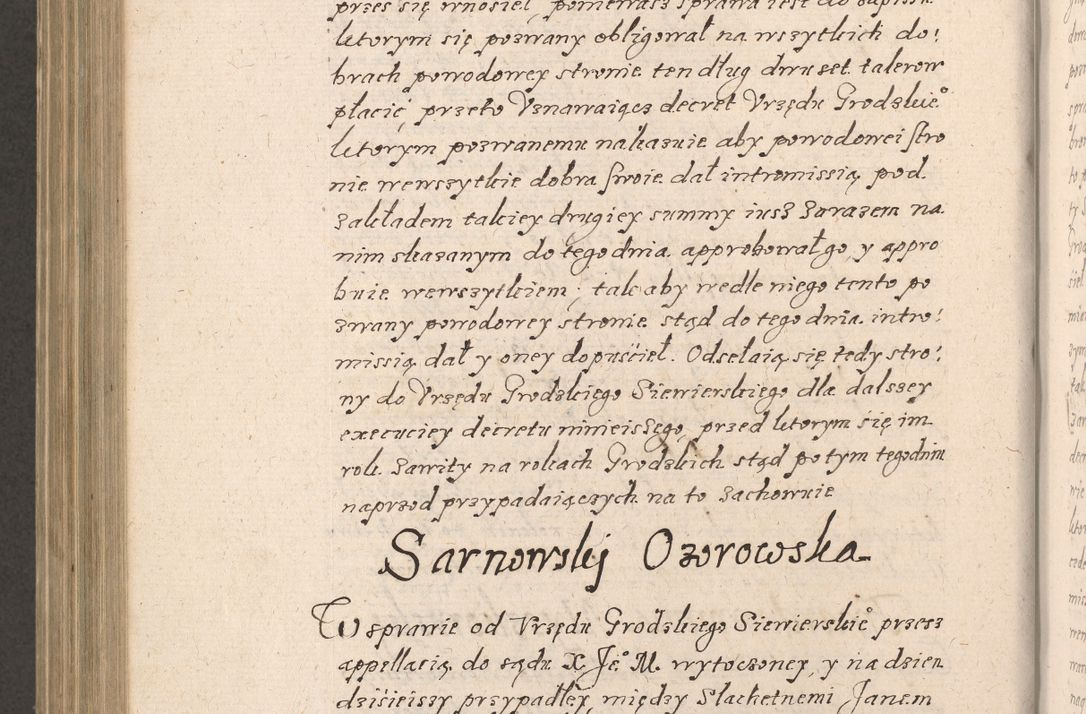 przes się wnosieł, ponieważ sprawa iest do odpisu
ktorym się pozwany obligował na wszytkich do:
brach powodowey stronie ten dług dwu set talerow
płacić, przeto Vznawaiącz decret Vrzędu Grodzkie°
ktorym pozwanemu nakazuie aby powodowei stro
nie wewszytkie dobra swoie dał intromissią pod
zakładem takiey drugiey summy iusz zarazem na
nim skazanym do tego dnia approbował go, y appro
buie wewszytkiem; tak aby wedle niego tento po
zwany powodowey stronie stąd do tego dnia intro:
missią dał y oney dopuścieł. Odsełaią się tedy stro:
ny do Vrzędu Grodzkiego Siewierskiego dla dalszey
execuciey decretu ninieiszego, przed ktorym się im
rok zawity na rokach Grodzkich stąd potym tegodnim
naprzod przypadaiączych na to zachownie
Sarnowskij Ozorowska
W sprawie od Vrzędu Grodzkiego Siewierskie° przesz
appellacią do sądu X Je° M. wytoczoney, y na dzien
dzisieiszy przypadłey między Slachetnemi Janem